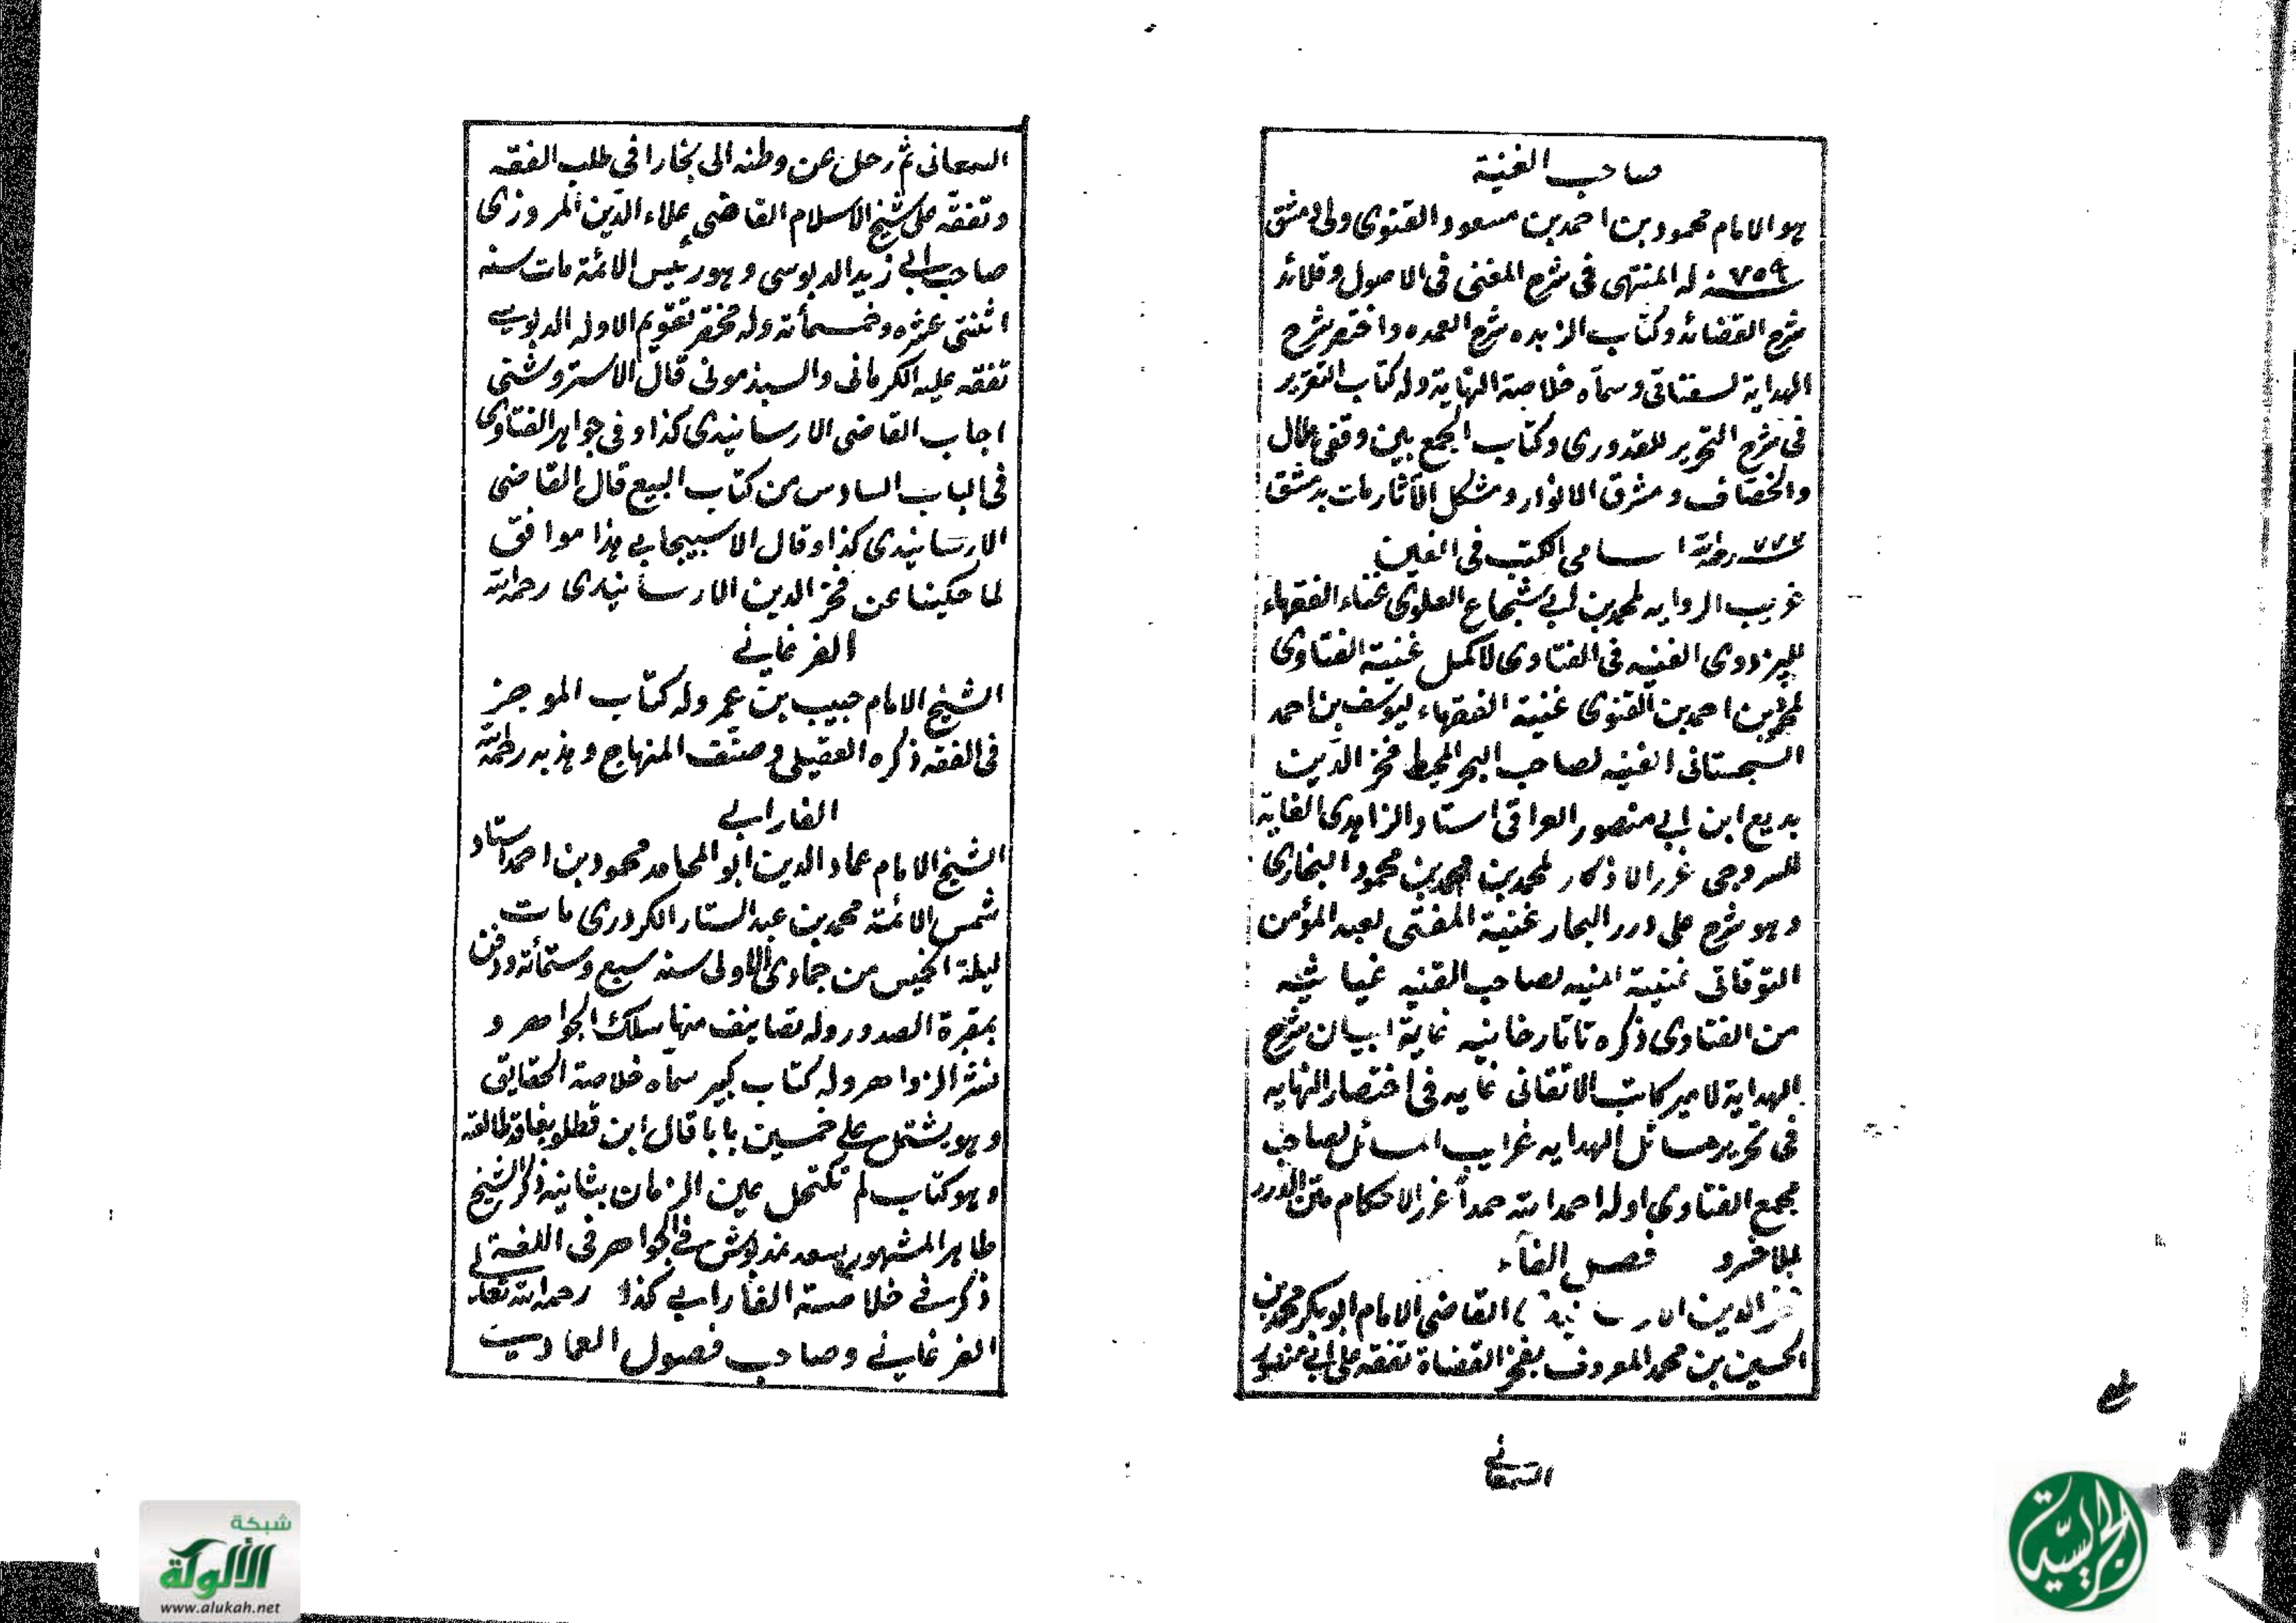 صاحب الغنية
هو الامام محمود بن احمد بن مسعود القنوى ولى دمشق
٧٥٩ سنه له المنتهى فى شرح المغنى فى الاصول وقلائد
شرح القصائد وكتاب الزبده شرح العمده واختصر شرح
الهداية لسغناقى وسماه خلاصة النهاية وله كتاب التقرير
فى شرح التحرير للقدورى وكتاب الجمع بين وقفى هلال
والخصاف ومشرق الانوار ومشكل الآثار مات بدمشق
٧٧٧ رحمه الله اسامى الكتب فى الغين
غريب الروايه لمحمد بن ابى شجاع العلوى غناء الفقهاء
للبزدوى الغنيه فى الفتاوى لاكمل غنية الفتاوى
لمحمود بن احمد بن القنوى غنية الفقهاء ليوسف بن احمد
السجستانى الغنيه لصاحب البحر المحيط فخر الدين
بديع ابن ابى منصور العراقى استاد الزاهدى الغاية
للسروجى غرر الاذكار لمحمد بن محمد بن محمود البخارى
وهو شرح على درر البحار غنية المفتى لعبد المؤمن
التوقاتى غنية المنيه لصاحب القنيه غياثيه
من الفتاوى ذكره تاتارخانيه غاية البيان شرح
الهداية لامير كاتب الاتقانى غايه فى اختصار النهايه
فى تحرير مسائل الهدايه غرايب المسائل لصاحب
مجمع الفتاوى اوله احمد الله حمدا غرر الاحكام متن الدرر
لملا خسرو فصل الفآء
فخر الدين القاضى الامام ابو بكر محمد بن
الحسين بن محمد المعروف بفخر القضاة تفقه على ابى منصور
السمعانى
السمعانى ثم رحل عن وطنه الى بخارا فى طلب الفقه
وتفقه على شيخ الاسلام القاضى علاء الدين المروزى
صاحب ابى زيد الدبوسى وهو رئيس الائمة مات سنه
اثنتى عشره وخمسمأئة وله مختصر تقويم الاوله الدبوسى
تفقه عليه الكرمانى والسبذمونى قال الاستروشنى
اجاب القاضى الارسابندى كذا وفى جواهر الفتاوى
فى الباب السادس من كتاب البيع قال القاضى
الارسابندى كذا وقال الاسبيجابى هذا موافق
لما حكينا عن فخر الدين الارسابندى رحمه الله
الفرغانى
الشيخ الامام حبيب بن عمر وله كتاب الموجز
فى الفقه ذكره العقيلى وصنف المنهاج وهذبه رحمه الله
الفارابى
الشيخ الامام عماد الدين ابو المحامد محمود بن احمد استاد
شمس الائمة محمد بن عبد الستار الكردرى مات
ليلة الخميس من جمادى الاولى سنه سبع وستمأئة ودفن
بمقبرة الصدور وله تصانيف منها سلك الجواهر و
نثر الزواهر وله كتاب كبير سماه خلاصة الحقايق
وهو يشتمل على خمسين بابا قال ابن قطلوبغا وقد طالعته
وهو كتاب لم تكتحل عين الزمان بثانيه ذكر الشيخ
طاهر المشهور بسعد فى الجواهر فى اللغة
ذكر فى خلاصة الفارابى كذا رحمه الله تعالى
الفرغانى وصاحب فصول العماديه
شبكة
الألوكة
www.alukah.net